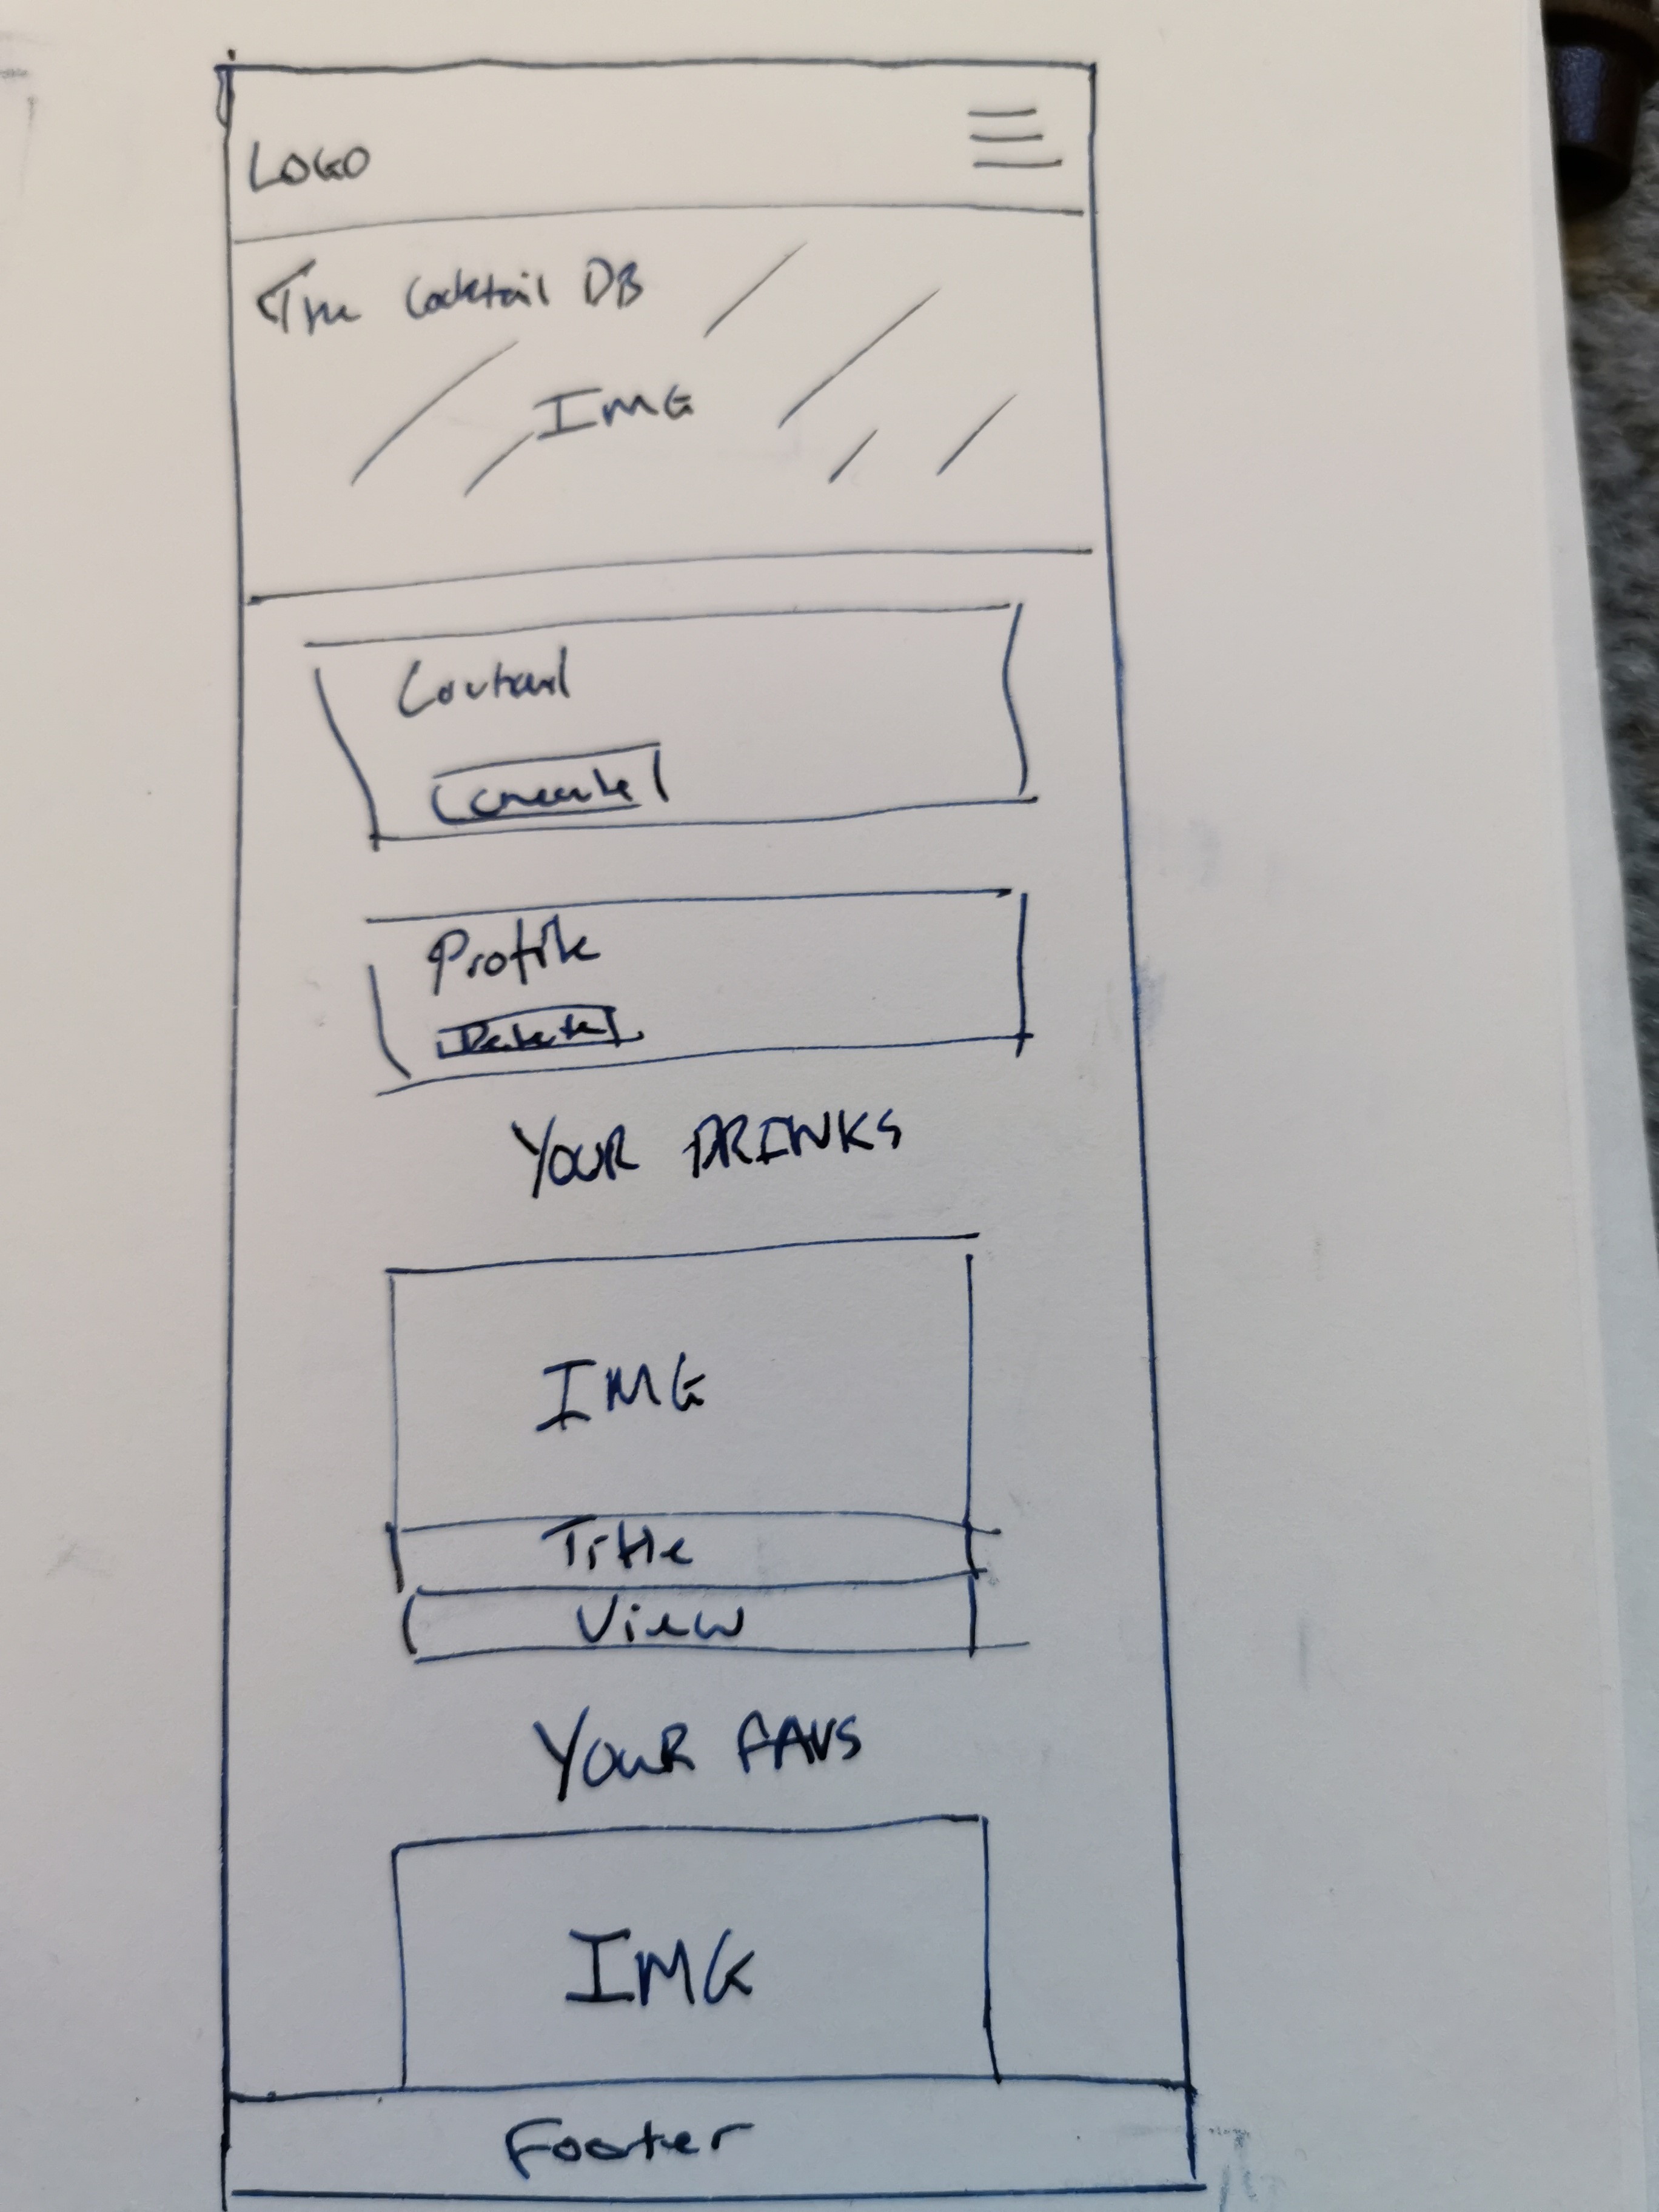 LOGO
The Cocktail DB
IMG
Create
Profile
Delete
YOUR DRINKS
IMG
Title
View
YOUR FAVS
IMG
Footer